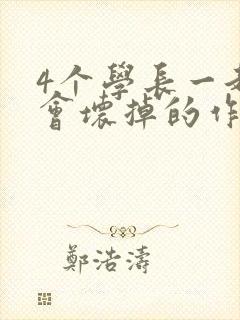 4个學長一
會壞掉的作
鄭浩濤